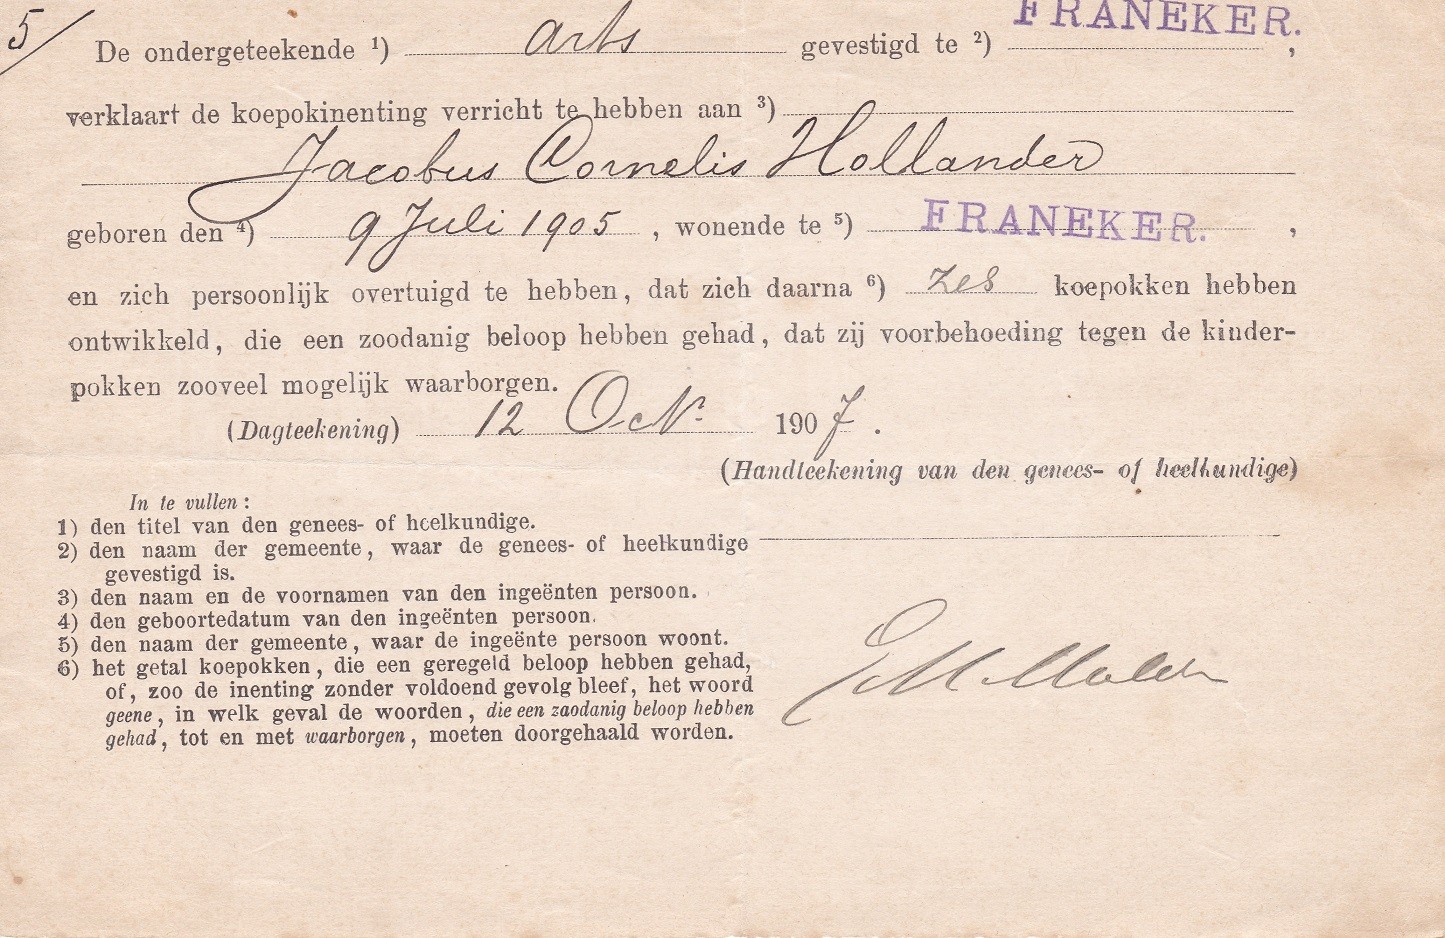 5/
FRANEKER.
De ondergeteekende ¹) arts gevestigd te ²) ,
verklaart de koepokinenting verricht te hebben aan ³)
Jacobus Cornelis Hollander
geboren den ⁴) 9 Juli 1905 , wonende te ⁵) FRANEKER. ,
en zich persoonlijk overtuigd te hebben, dat zich daarna ⁶) zes koepokken hebben
ontwikkeld, die een zoodanig beloop hebben gehad, dat zij voorbehoeding tegen de kinder-
pokken zooveel mogelijk waarborgen.
(Dagteekening) 12 Oct. 1907.
(Handteekening van den genees- of heelkundige)
In te vullen:
1) den titel van den genees- of heelkundige.
2) den naam der gemeente, waar de genees- of heelkundige
gevestigd is.
3) den naam en de voornamen van den ingeënten persoon.
4) den geboortedatum van den ingeënten persoon.
5) den naam der gemeente, waar de ingeënte persoon woont.
6) het getal koepokken, die een geregeld beloop hebben gehad,
of, zoo de inenting zonder voldoend gevolg bleef, het woord
geene, in welk geval de woorden, die een zaodanig beloop hebben
gehad, tot en met waarborgen, moeten doorgehaald worden.